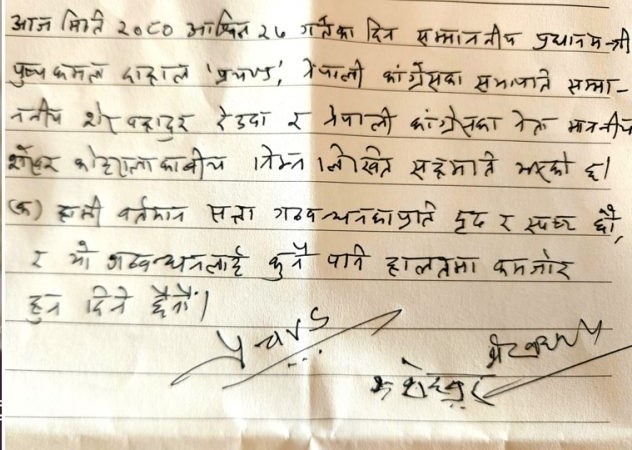 आज मिति २०८० आश्विन २६ गतेका दिन सम्माननीय प्रधानमन्त्री
पुष्पकमल दाहाल 'प्रचण्ड', नेपाली कांग्रेसका सभापति सम्मा-
ननीय शेरबहादुर देउवा र नेपाली कांग्रेसका नेता माननीय
शेखर कोइरालाका बीच निम्न लिखित सहमति भएको छ।
(क) हामी वर्तमान सत्ता गठबन्धनका प्रति दृढ र स्पष्ट छौं,
र यो गठबन्धनलाई कुनै पनि हालतमा कमजोर
हुन दिने छैनौं।
प्रचण्ड